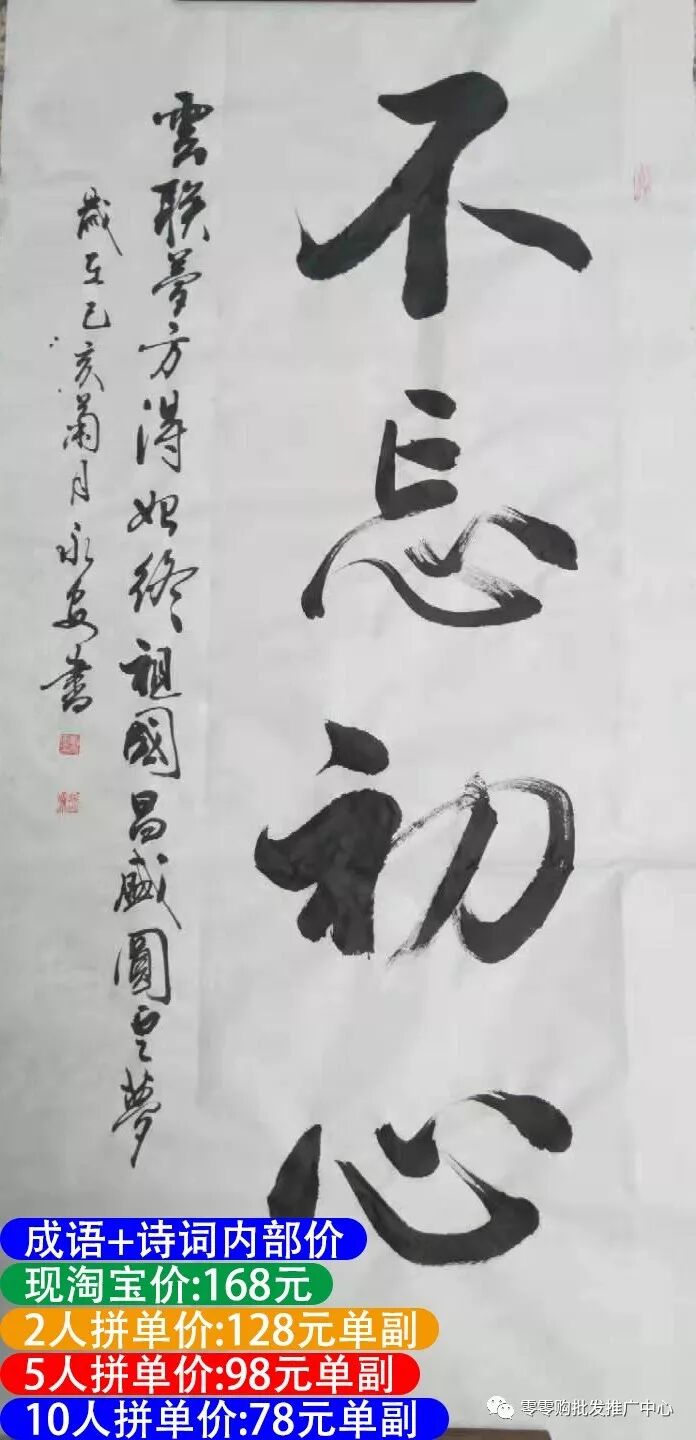 不忘初心
雲联夢方得始终祖國昌盛圓雲夢
歲在己亥菊月永安書
成语+诗词内部价
现淘宝价:168元
2人拼单价:128元单副
5人拼单价:98元单副
10人拼单价:78元单副
零零购批发推广中心